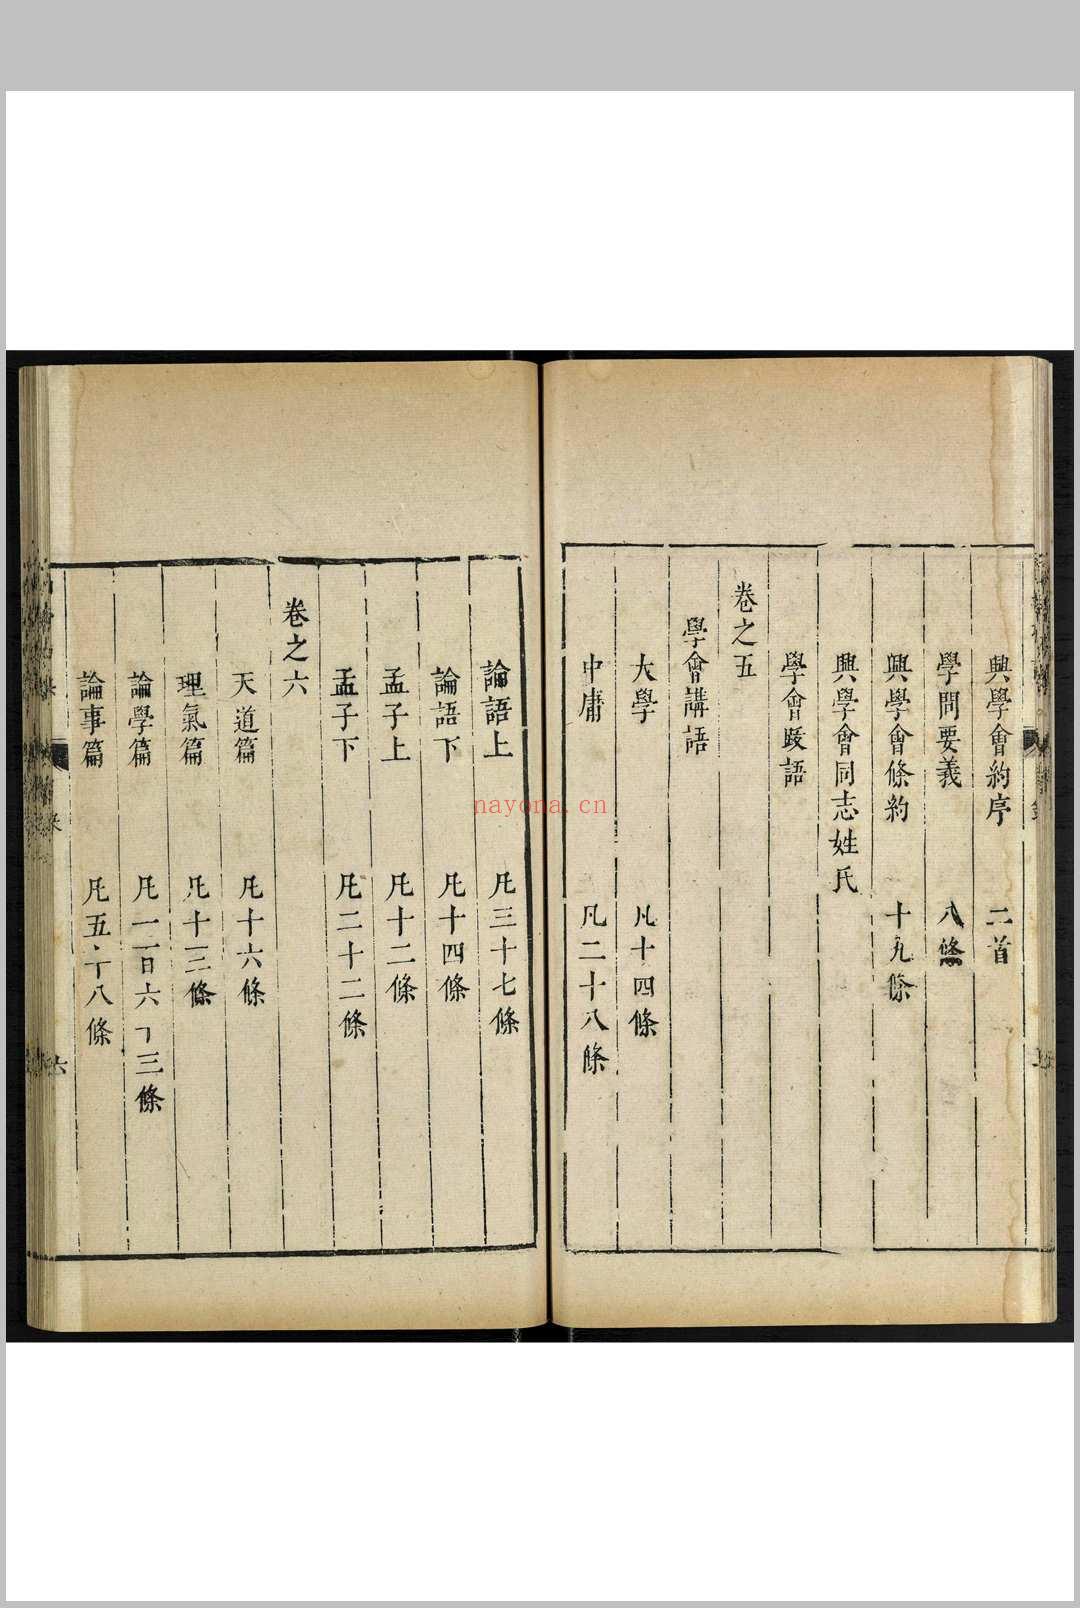 興學會約序　二首
學問要義　八條
興學會條約　十九條
興學會同志姓氏
學會䟦語
卷之五
學會講語
大學　凡十四條
中庸　凡二十八條
論語上　凡三十七條
論語下　凡十四條
孟子上　凡十二條
孟子下　凡二十二條
卷之六
天道篇　凡十六條
理氣篇　凡十三條
論學篇　凡一百六十三條
論事篇　凡五十八條
六
nayona.cn